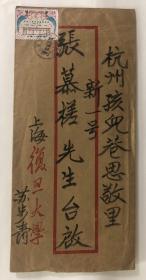 杭州孩儿巷思敬里
新一号
張慕槎先生台啟
上海復旦大學
苏步青